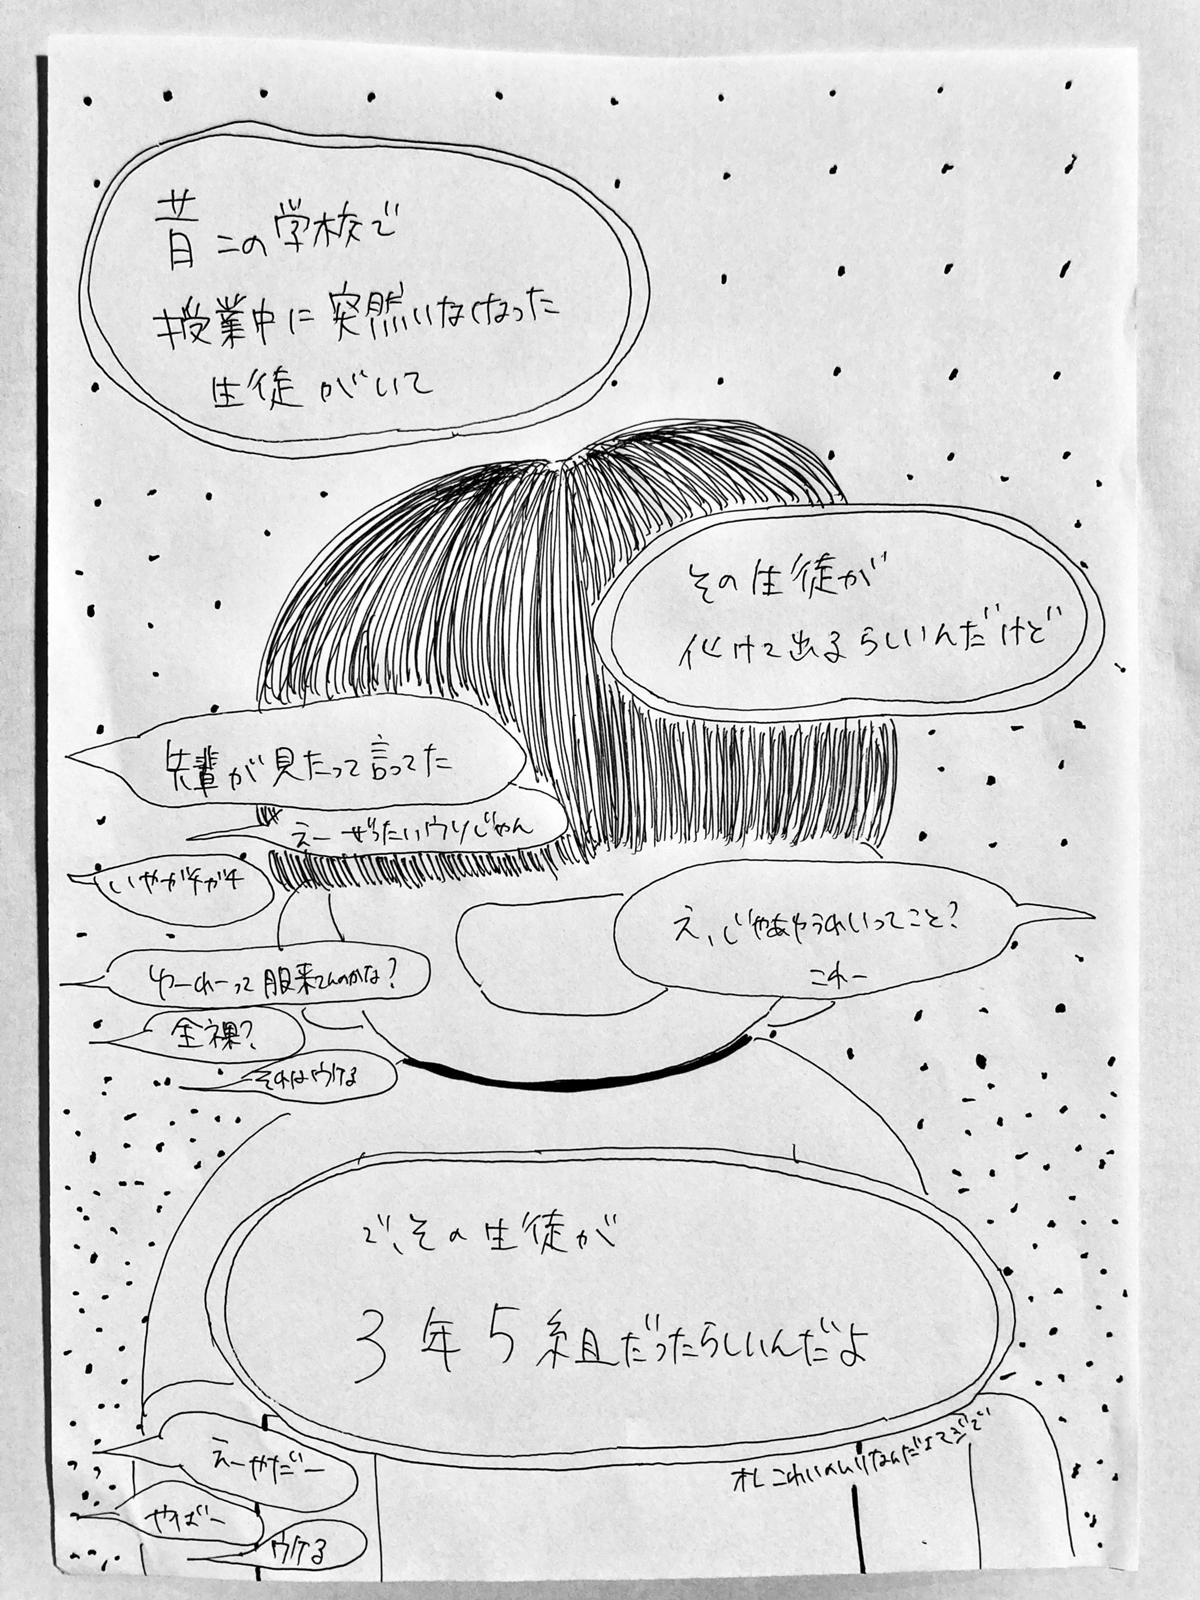 昔この学校で
授業中に突然いなくなった
生徒がいて
その生徒が
化けて出るらしいんだけど
先輩が見たって言ってた
えーぜったいウソじゃん
いやガチガチ
え、じゃあゆうれいってこと?
これー
ゆーれーって服来てんのかな?
全裸?
それはウケる
で、その生徒が
3年5組だったらしいんだよ
オレこわいのムリなんだよマジで
えーやだー
やばー
ウケる